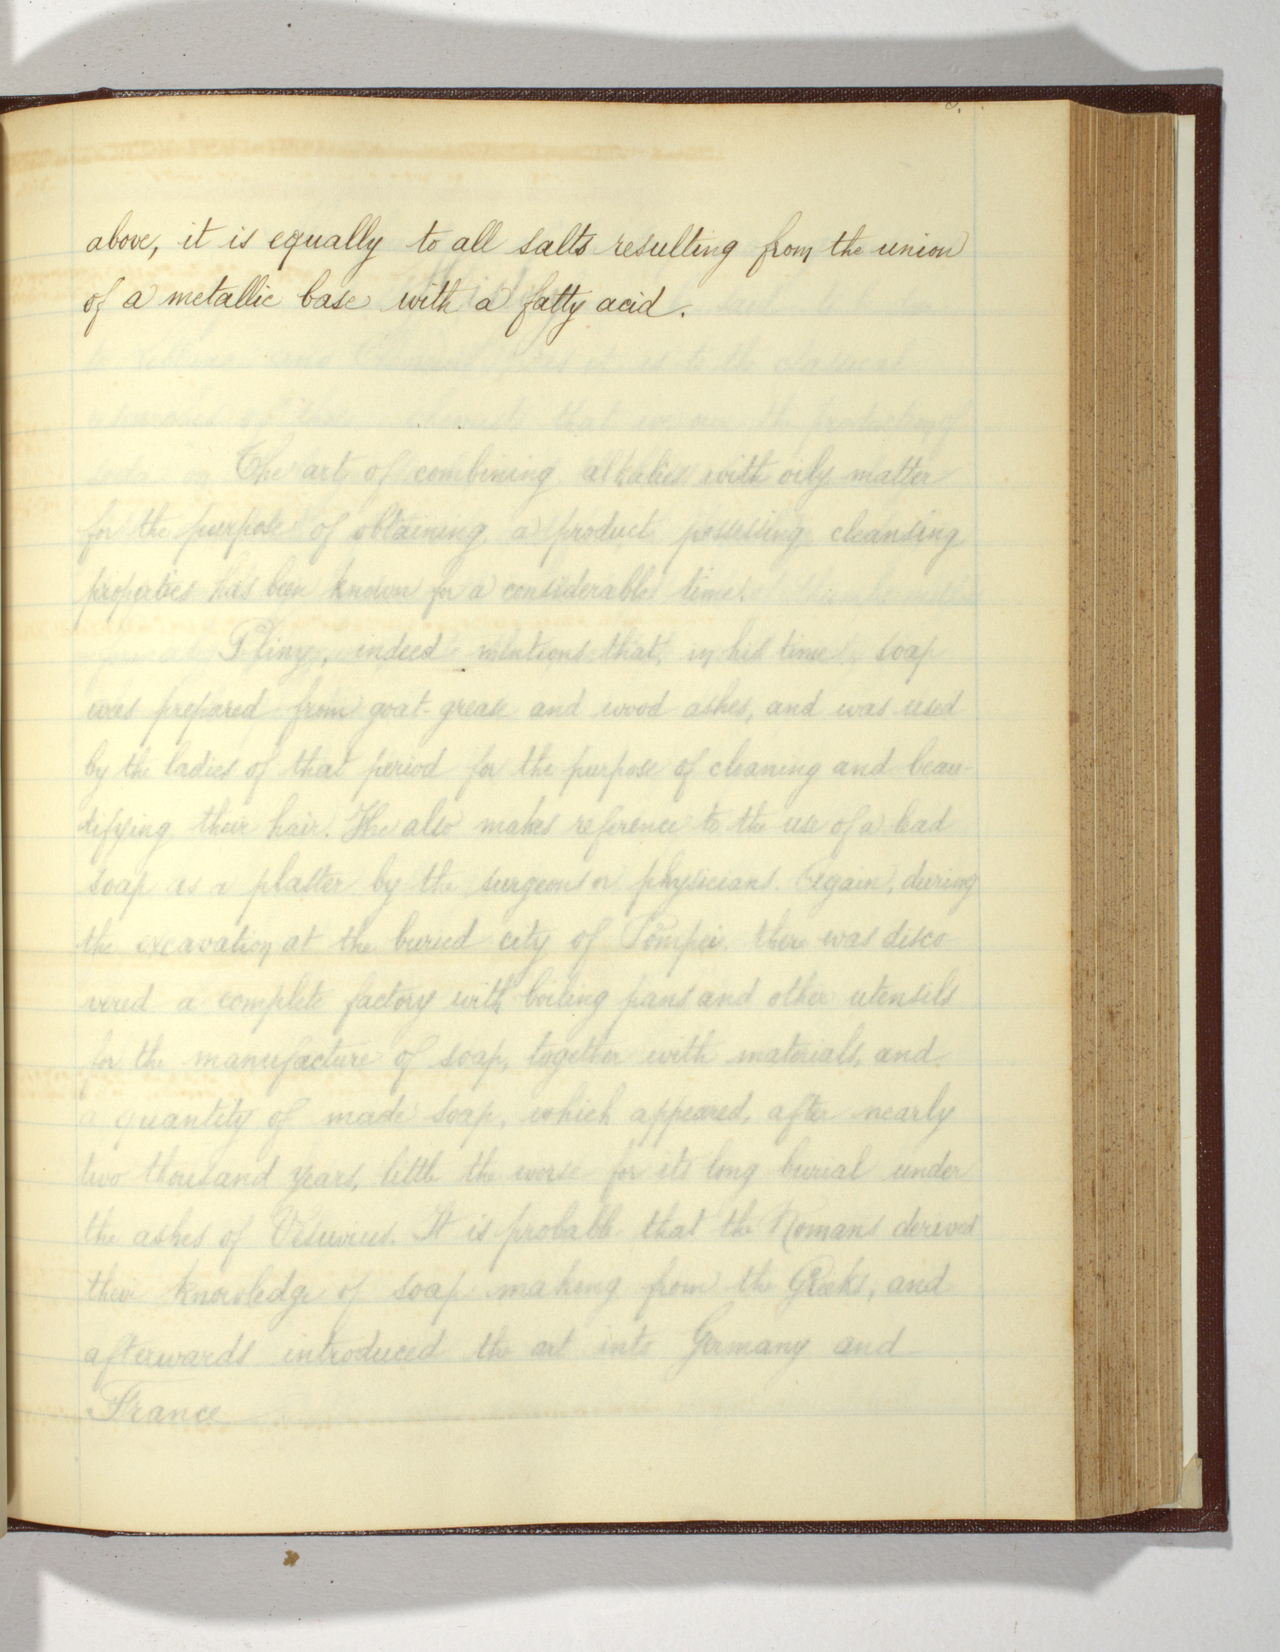 above, it is equally to all salts resulting from the union
of a metallic base with a fatty acid.
The art of combining alkalies with oily matter
for the purpose of obtaining a product possessing cleansing
properties has been known for a considerable time.
Pliny, indeed mentions that, in his time, soap
was prepared from goat-grease and wood ashes, and was used
by the ladies of that period for the purpose of cleaning and beau-
tifying their hair. He also makes reference to the use of a lead
soap as a plaster by the surgeons or physicians. Again, during
the excavation at the buried city of Pompei, there was disco-
vered a complete factory with boiling pans and other utensils
for the manufacture of soap, together with materials, and
a quantity of made soap, which appeared, after nearly
two thousand years, little the worse for its long burial under
the ashes of Vesuvius. It is probable that the Romans derived
their knowledge of soap making from the Greeks, and
afterwards introduced the art into Germany and
France